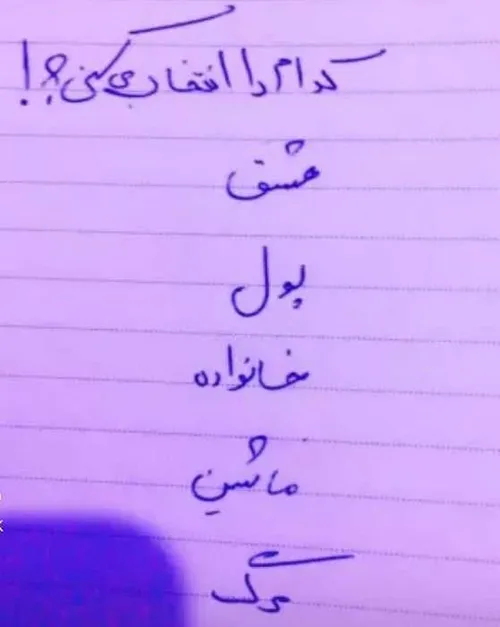 کدام را انتخاب می کنی؟!
عشق
پول
خانواده
ماشین
مرگ